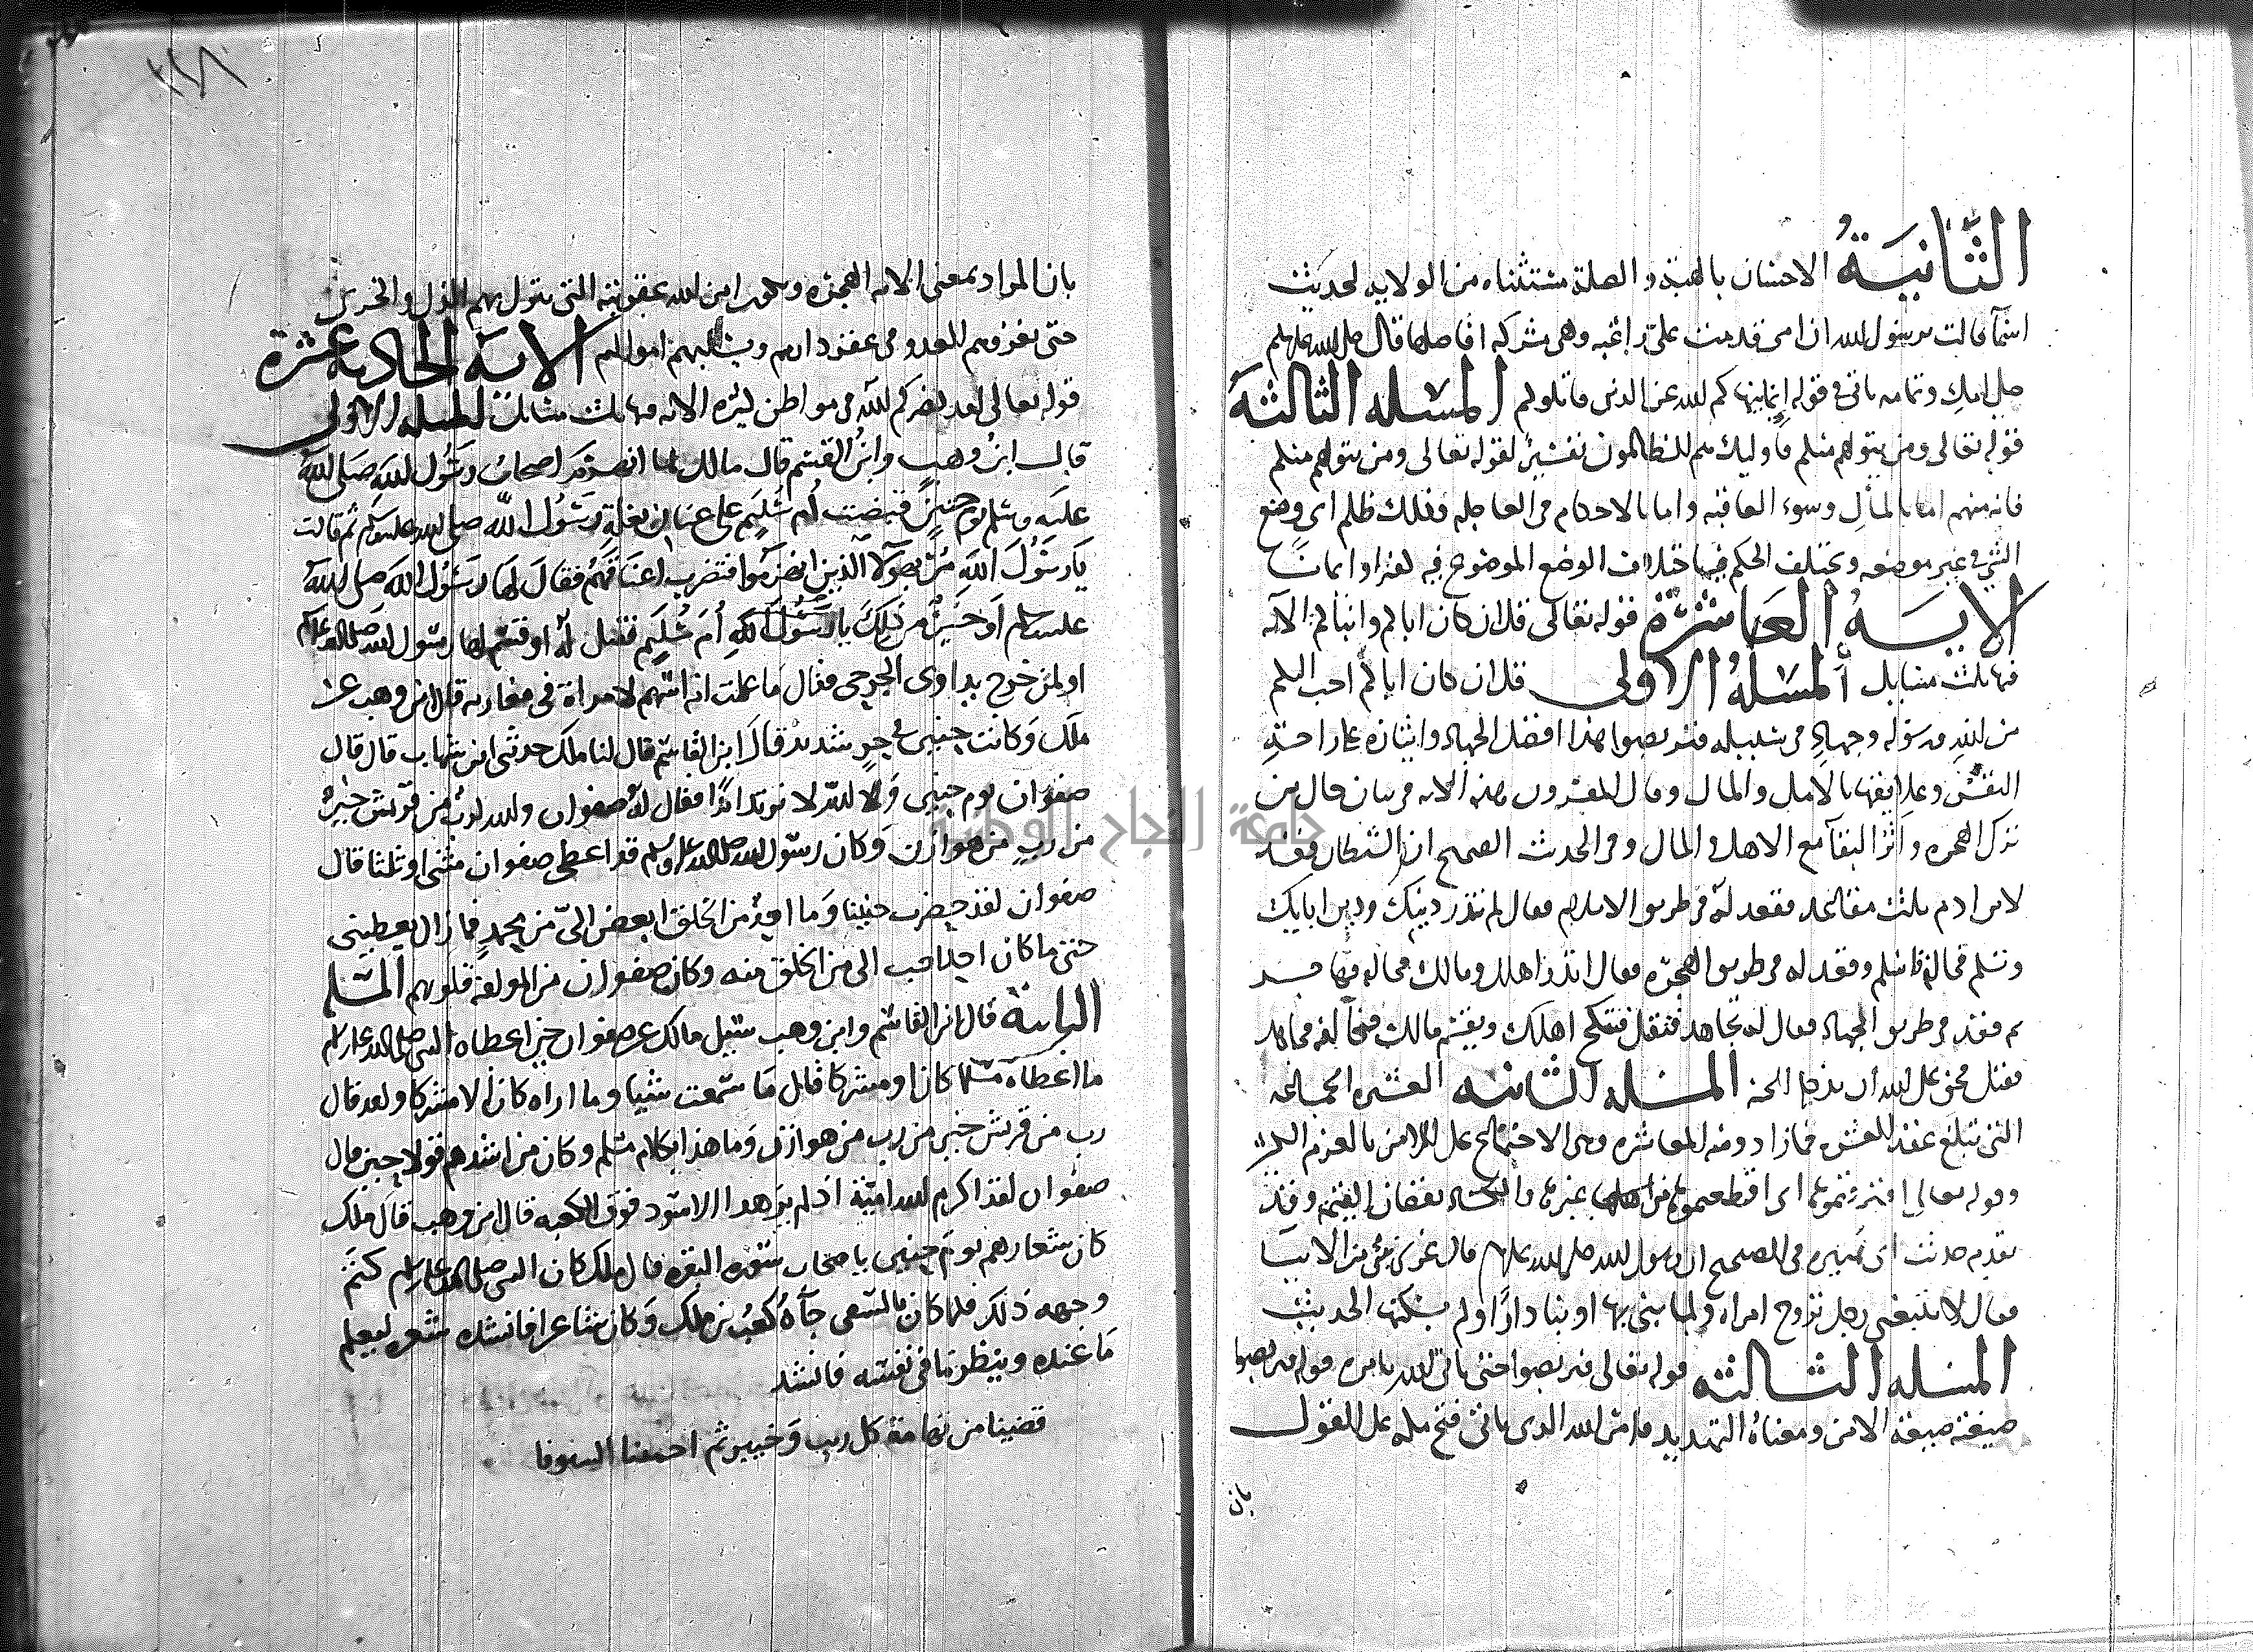 الثَّانِيَةُ الاحسان بالهبة والصلة مستثناه من الولايه لحديث
اسمآ قالت يرسول الله ان امى قدمت علىّ راغبه وهى مشركه افاصلها قال صلى الله عليه وسلم
صلى امك وتمامه ياتى فى قوله إنما ينهاكم الله عن الدىن قاتلوكم المسله الثالثة
قوله تعالى ومن يتولهم منكم فاوليك هم الظالمون تفسيرٌ لقوله تعالى ومن يتولهم منكم
فانه منهم اما بالمآلِ وسوء العاقبه واما بالاحكام فى العاجله وذلك ظلم اى وضع
الشئ فى غير موضعه ويختلف الحكم فيه باختلاف الوضع الموضوع فيه كفرا وايمانًا
الايـــة العاشرة قوله تعالى قل ان كان اباوكم وابناوكم الآيه
فيها ثلث مسايل المسلهُ الاولى قل ان كان اباوكم احب اليكم
من الله ورسوله وجهادٍ فى سبيله فتربصوا هذا افضل الجهاد وايثاره على راحة
النفس وعلايقها بالاهل والمال وقال المفسرون هذه الايه فى بيان حال من
ترك الهجره واثر البقآ مع الاهل والمال وفى الحديث الصحيح ان الشيطان قعد
لابن ادم ثلث مقاعد قعد لهُ فى طريق الاسلام فقال لم تذر دينك ودين ابايك
وتسلم فخالفهُ فاسلم وقعد له فى طريق الهجره فقال اتذر اهلك ومالك فخالفه فهاجـــر
ثم قعد فى طريق الجهاد فقال له تجاهد فتقتل فتنكح اهلك ويقسم مالك فخالفه فجاهد
فقتل فحق على الله أن يدخله الجنه المسله الثانيه العشيره الجماعه
التى تبلغ عقد العشره فما زاد ومنه المعاشره وهى الاجتماع على الامر بالعزم الكثير
وقوله تعالى اقترفتموها اى اقتطعتموها من غيرها والكساد نقصان القيمة وقد
تقدم حديث ابى هريره فى الصحيح ان رسول الله صلى الله عليه وسلم قال غزى نبىٌ من الانبيا
فقال لا يتبعنى رجل تزوج امراه ولما يبنى بها او بنا دارًا ولم يسكنها الحديث
المسله الثالثه قوله تعالى فتربصوا حتى ياتى الله بامره قوله فتربصوا
صيغته صيغة الامر ومعناهُ التهديد وامر الله الذى ياتى فتح مكه على القول
بان
بان المراد بمعنى الايه الهجره ويكون امر الله عقوبته التى تنزل بهم الذل والخزى
حتى يغزوهم العدو فى عقر دارهم ويسلبهم اموالهم الايــة الحاديه عشرة
قوله تعالى لقد نصركم اللهُ فى مواطن كثيره الايه فيها ثلث مسايل المسله الاولى
قال ابنُ وهبٍ وابنُ القسم قال مالك لما انهزم اصحابُ رسُول الله صَلى اللهُ
عليَه وسلم يوم حنينٍ قبضت أم سُلَيم على عنان بغلة رسُول الله صلى الله عليه وسلم ثم قالت
يَا رسُولَ اللهِ مُر بهولآ الذين انهزموا فتضرب اعنَاقهُم فقالَ لهَا رسُول الله صلى اللهُ
عليه وسلم أَو خَيرٌ من ذلِكَ يا أم سُلَيم فقيل لهُ او قسم لها رسول الله صلى الله عليه وسلم
او لمن خرج يداوى الجرحى فقال مَا علمت انه اسهم لامراة فى مغازيه قال ابن وهب عن
ملك وكانت حنين فى حرٍ شديد قالَ ابن القاسم قال لنا ملك حدثنى ابن شهاب قال قال
صفوان يوم حنين الله لا نرتد ابدًا فقال لهُ صفوان والله لربٌ من قريش خيرٌ
من ربٍ من هوازن وَكان رسوُل الله صلى الله عليه وسلم قد اعطى صفوان مثنى او ثلثا قال
صفوان لقد حضرت حنينا وَما احدٌ من الخلق ابغض الىّ من محمدٍ فما زال يعطينى
حتى ما كان احد احب الى من الخلق منه وكان صفوان من المولفه قلوبهم المسله
الثانية قال ابن القاسم وابن وهب سُيل مالك عن صفوان حين اعطاه النبى صلى الله عليه وسلم
ما اعطاه مسلما كان او مشركا قال مَا سمعت شيا وما اراه كان الا مشركا ولقد قال
رب من قريش خير من رب من هوازن وَما هذا بكلام مسلم وكان من اشدهم قولا حين قال
صفوان لقد اكرم الله اميّة اذ لم ير هذا الاسود فوق الكعبه قال ابن وهب قال ملك
كان شعارهم يومَ حنين يا صحاب سُوره البقره قال ملك كان النبى صلى الله عليه وسلم كتم
وجهه ذلك فلما كان بالسّعى جآهُ كعبُ بن ملك وَكان شاعرا فانشده شعره ليعلم
مَا عنده وينظر مَا فى نفسه فانشد
قضينا من تهامة كل ريب وَخيبر ثم اجمعنا السيوفا
جامعة النجاح الوطنية